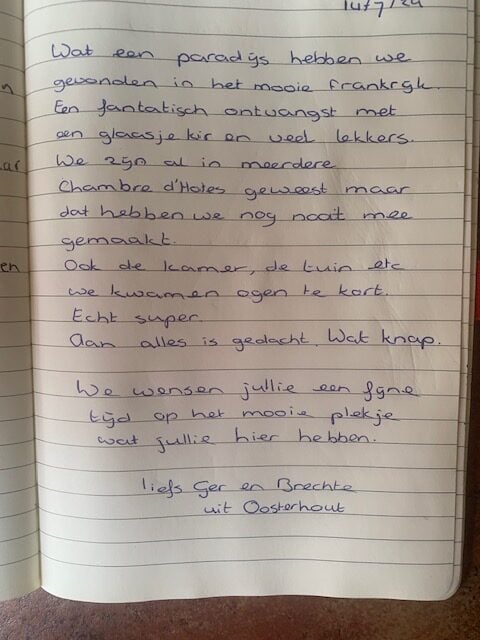 14/7/24
Wat een paradijs hebben we
gevonden in het mooie Frankrijk.
Een fantatisch ontvangst met
een glaasje kir en veel lekkers.
We zijn al in meerdere
Chambre d'Hotes geweest maar
dat hebben we nog nooit mee
gemaakt.
Ook de kamer, de tuin etc
we kwamen ogen te kort.
Echt super.
Aan alles is gedacht. Wat knap.
We wensen jullie een fijne
tijd op het mooie plekje
wat jullie hier hebben.
liefs Ger en Brechte
uit Oosterhout